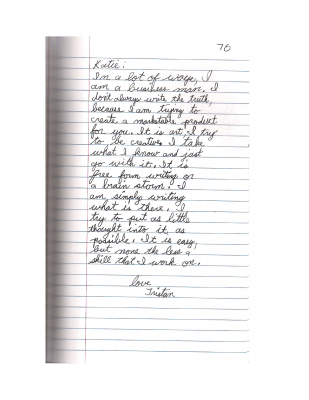 70
Katie:
In a lot of ways, I
am a business man. I
don't always write the truth,
because I am trying to
create a marketable product
for you. It is art. I try
to be creative. I take
what I know and just
go with it. It is
free form writing or
a brain storm. I
am simply writing
what is there. I
try to put as little
thought into it as
possible. It is easy,
but none the less a
skill that I work on.
love
Tristan